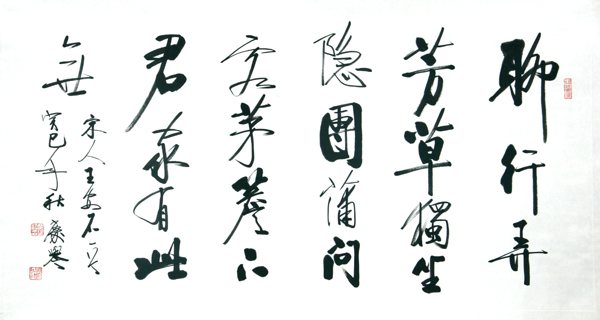 聊行弄
芳草獨坐
隐團蒲问
客茅簷下
君家有此
無
宋人王安石一首
癸巳年秋